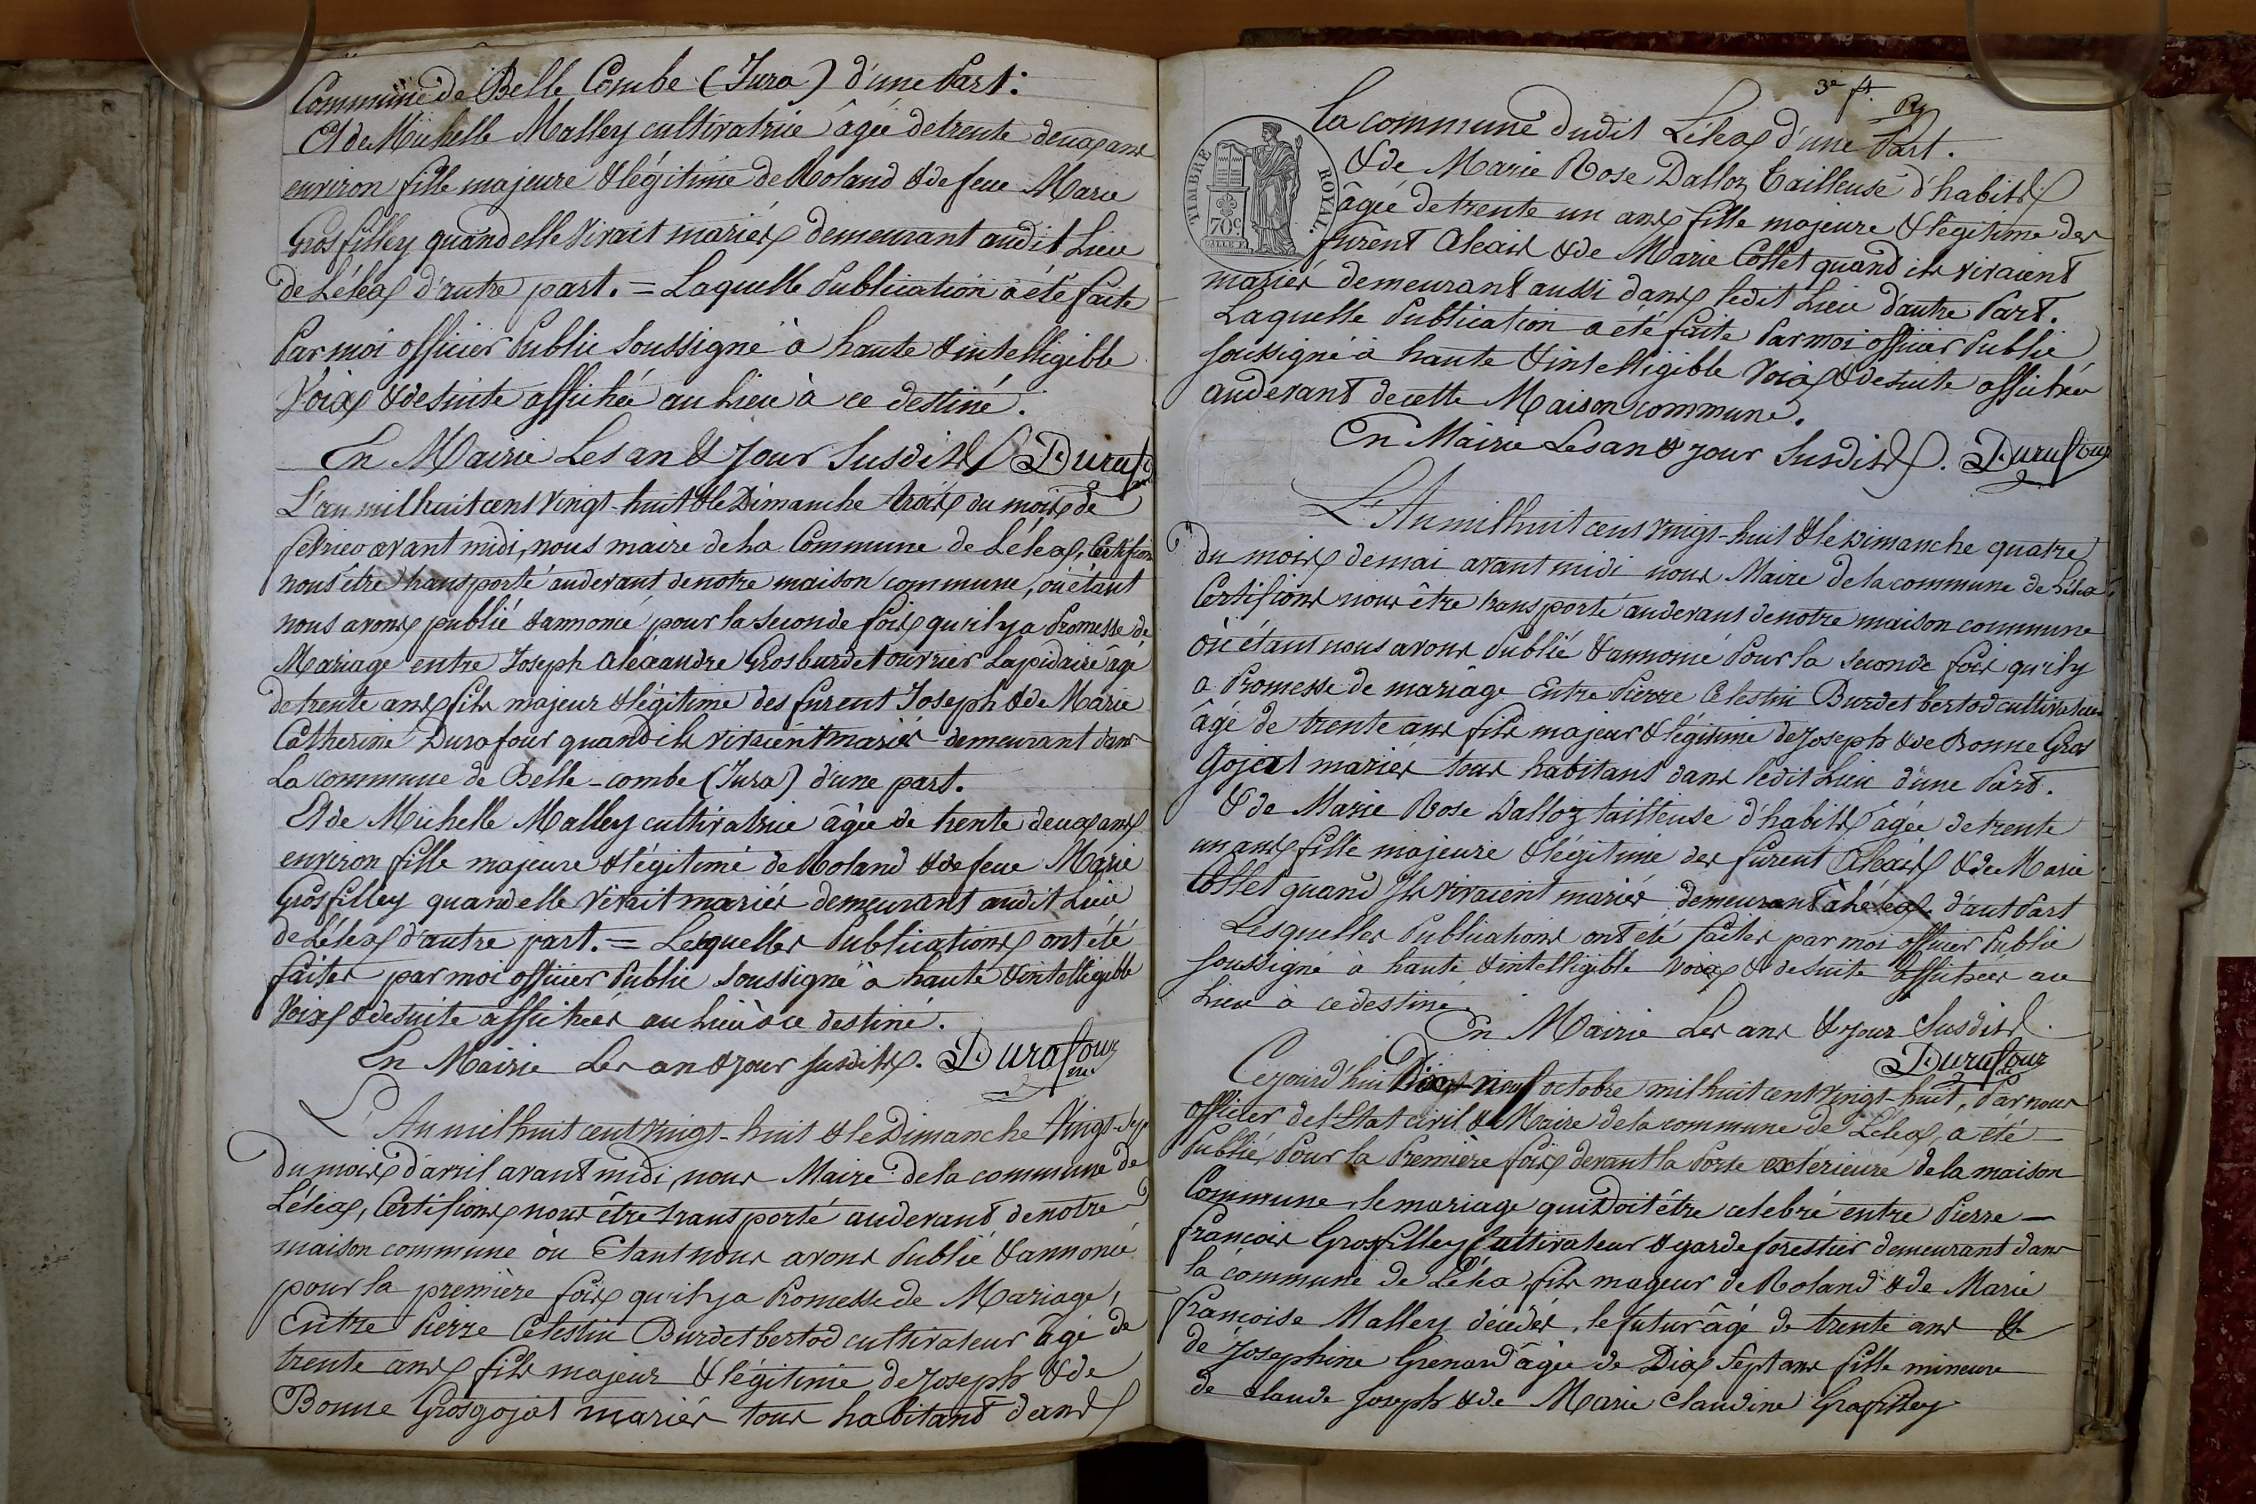 Commune de Belle Combe (Jura) d'une Part :
Et de Michelle Malley cultivatrice âgée de trente deux ans
environ fille majeure & légitime de Roland & de feue Marie
Grosfilley quand elle vivait mariés demeurant audit Lieu
de Lélex d'autre part. = Laquelle Publication a été faite
Par moi officier Public Soussigné à haute & intelligible
Voix & de suite affichée au Lieu à ce destiné.
En Mairie Les an & Jour Susdits Durafour
L'an mil huit cent vingt-huit & le Dimanche trois du mois de
février avant midi, nous maire de La Commune de Lélex, Certifions
nous être transporté au devant de notre maison commune, où étant
nous avons publié & annoncé pour la seconde fois qu'il y a Promesse de
Mariage entre Joseph Alexandre Grosburdet ouvrier Lapidaire âgé
de trente ans fils majeur & légitime des furent Joseph & de Marie
Catherine Durafour quand ils vivaient mariés demeurant dans
La commune de Belle-combe (Jura) d'une part.
Et de Michelle Malley cultivatrice âgée de trente deux ans
environ fille majeure & légitime de Roland & de feue Marie
Grosfilley quand elle vivait mariés demeurant audit Lieu
de Lélex d'autre part. = Lesquelles Publications ont été
faites par moi officier Public Soussigné à haute & intelligible
Voix & de suite affichées au Lieu à ce destiné.
En Mairie Les an & jour susdits. Durafour
L'An mil huit cent vingt-huit & le Dimanche Vingt-sept
du mois d'avril avant midi, nous Maire de la commune de
Lélex, Certifions nous être transporté au devant de notre
maison commune où Etant nous avons Publié & annoncé
pour la première fois qu'il y a Promesse de Mariage,
Entre Pierre Célestin Burdet bertod cultivateur âgé de
trente ans fils majeur & légitime de Joseph & de
Bonne Grosgojat mariés tous habitant dans
3e ft.
la commune dudit Lélex d'une Part.
TIMBRE ROYAL
70c
& de Marie Rose Dalloz Tailleuse d'habits
âgée de trente un ans fille majeure & légitime des
furent Alexis & de Marie Collet quand ils vivaient
mariés demeurant aussi dans ledit Lieu d'autre Part.
Laquelle Publication a été faite Par moi officier Public
soussigné à haute & intelligible Voix & de suite affichée
au devant de cette Maison commune.
En Mairie Les an & jour Susdits. Durafour
L'An mil huit cent vingt-huit & le Dimanche quatre
du mois de mai avant midi nous Maire de la commune de Lélex
Certifions nous être transporté au devant de notre maison commune
où étant nous avons Publié & annoncé Pour la seconde fois qu'il y
a Promesse de mariage Entre Pierre Celestin Burdet bertod cultivateur
âgé de trente ans fils majeur & légitime de Joseph & de Bonne Gros
Gojat mariés tous habitant dans ledit Lieu d'une Part.
& de Marie Rose Dalloz tailleuse d'habits âgée de trente
un ans fille majeure & légitime des furent Alexis & de Marie
Collet quand Ils vivaient mariés demeurant à Lélex d'aut Part
Lesquelles Publications ont été faites par moi officier Public
soussigné à haute & intelligible voix & de suite affichées au
Lieu à ce destiné.
En Mairie Les ans & jour Susdits.
Durafour
Cejourd'hui Dix-neuf octobre mil huit cent vingt-huit, Par nous
officier de l'Etat civil & Maire de la commune de Lélex, a été
Publié Pour la Première fois devant la Porte extérieure de la maison
Commune, le mariage qui Doit être celebré entre Pierre
françois Grosfilley Cultivateur & garde forestier demeurant dans
la commune de Léléa fils mageur de Roland & de Marie
françoise Malley décédés, le futur âgé de trente ans &
de Josephine Grenard âgée de Dix Sept ans fille mineure
de claude joseph & de Marie Claudine Grosfilley